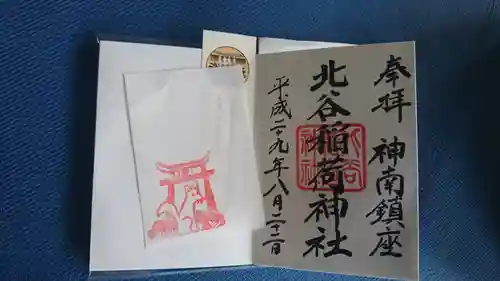 奉拝
神南鎮座
北谷稲荷神社
平成二十九年八月二十二日